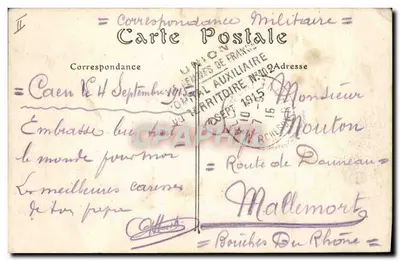 II
= Correspondance Militaire =
Carte Postale
Correspondance
Adresse
UNION
DES FEMMES DE FRANCE
HOPITAL AUXILIAIRE
DU TERRITOIRE N° 102
SEPT. 1915
Caen le 4 Septembre 1915
Embrasse bu
le monde pour moi
Les meilleures caresses
de ton
Monsieur
Mouton
Route de
Mallemort
= Bouches Du Rhône =